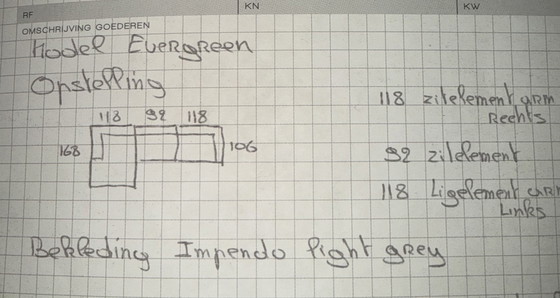 RF
KN
KW
OMSCHRIJVING GOEDEREN
Model Evergreen
Opstelling
118 92 118
168
106
118 zitelement arm
Rechts
92 zitelement
118 Ligelement arm
Links
Bekleding Impendo light grey